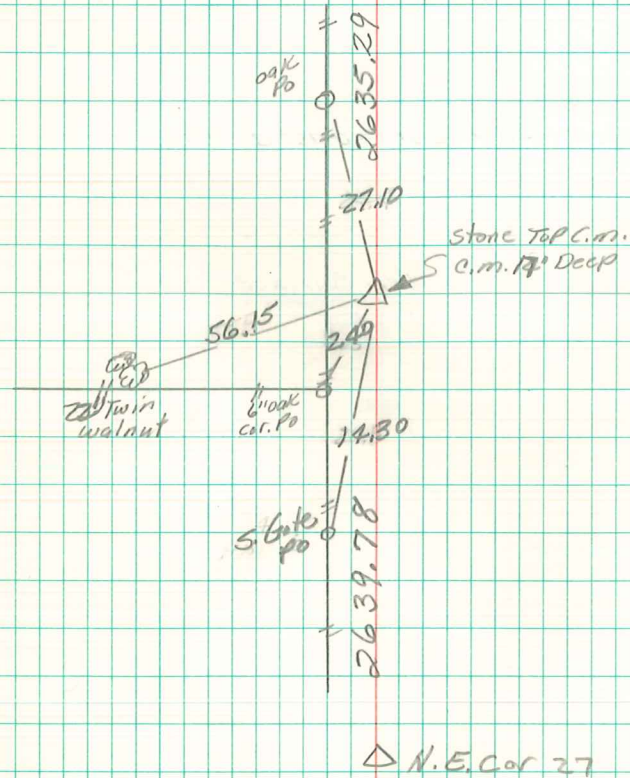 2635.29
oak
Po
27.10
Stone Top C.M.
C.M. Deep
56.15
2.49
Twin
walnut
6" oak
cor. Po
14.30
S. Gate
po
2639.78
N.E. Cor 27